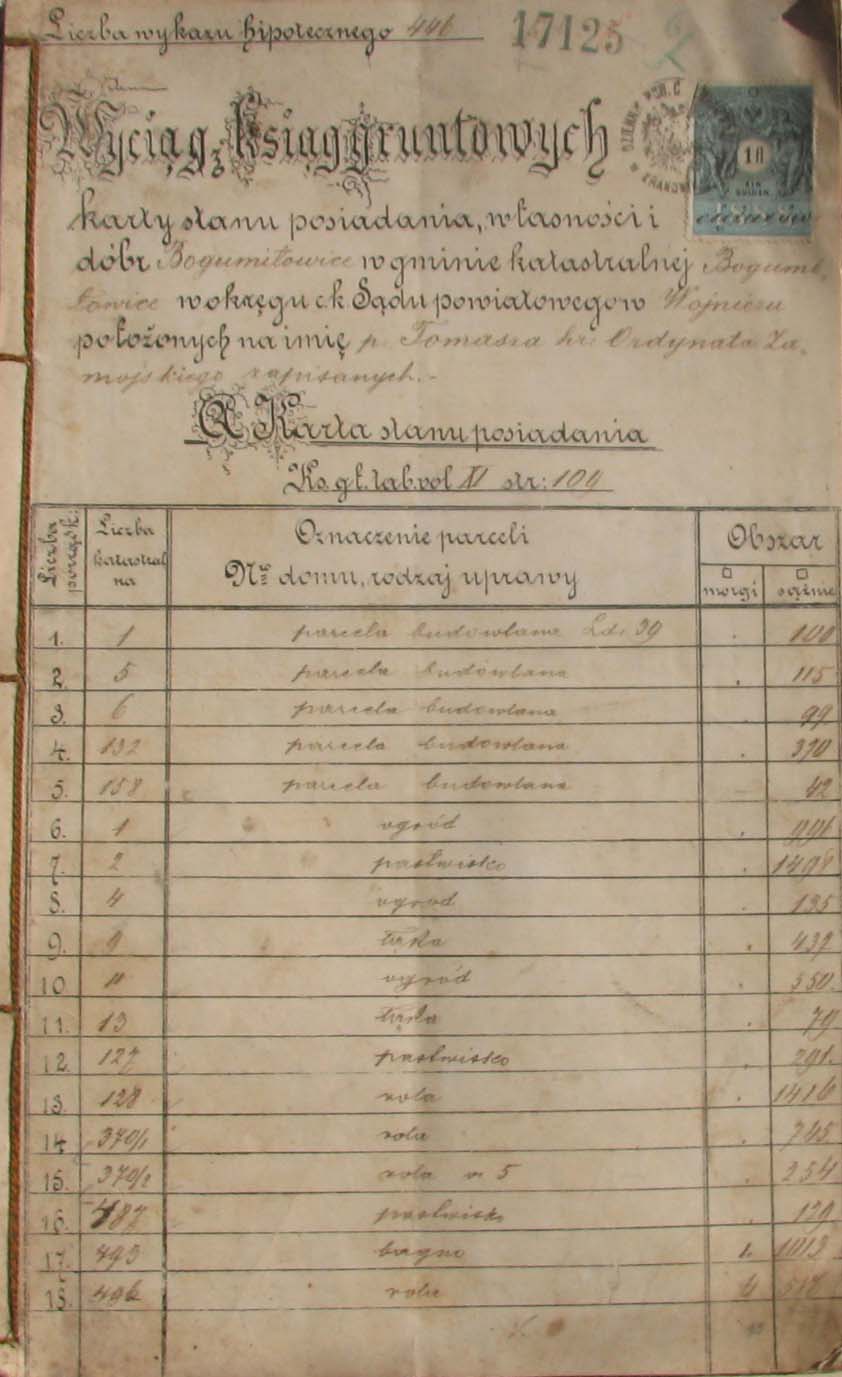 Liczba wykazu hipotecznego 446
17125 2
Wyciąg z Ksiąg gruntowych
karty stanu posiadania, własności i ciężarów
dóbr Bogumiłowice w gminie katastralnej Bogumi-
łowice w okręgu ck Sądu powiatowego w Wojniczu
położonych na imię p. Tomasza hr. Ordynata Za-
mojskiego zapisanych.-
A Karta stanu posiadania
Ks. gł. tab. vol XI str: 109
Liczba porządk. Liczba katastralna Oznaczenie parceli Nr domu, rodzaj uprawy Obszar □ morgi □ sążnie
1. 1 parcela budowlana Ld. 39 . 100
2. 5 parcela budowlana . 115
3. 6 parcela budowlana . 99
4. 132 parcela budowlana . 370
5. 158 parcela budowlana 42
6. 1 ogród . 991
7. 2 pastwisko . 1498
8. 4 ogród . 135
9. 9 łąka . 437
10 11 ogród . 550
11. 13 łąka . 79
12. 127 pastwisko . 291
13. 128 rola . 1416
14. 370/1 rola . 745
15. 370/2 rola 5 . 254
16. 487 pastwisko . 129
17. 493 bagno 1. 1013
18. 496 rola 4